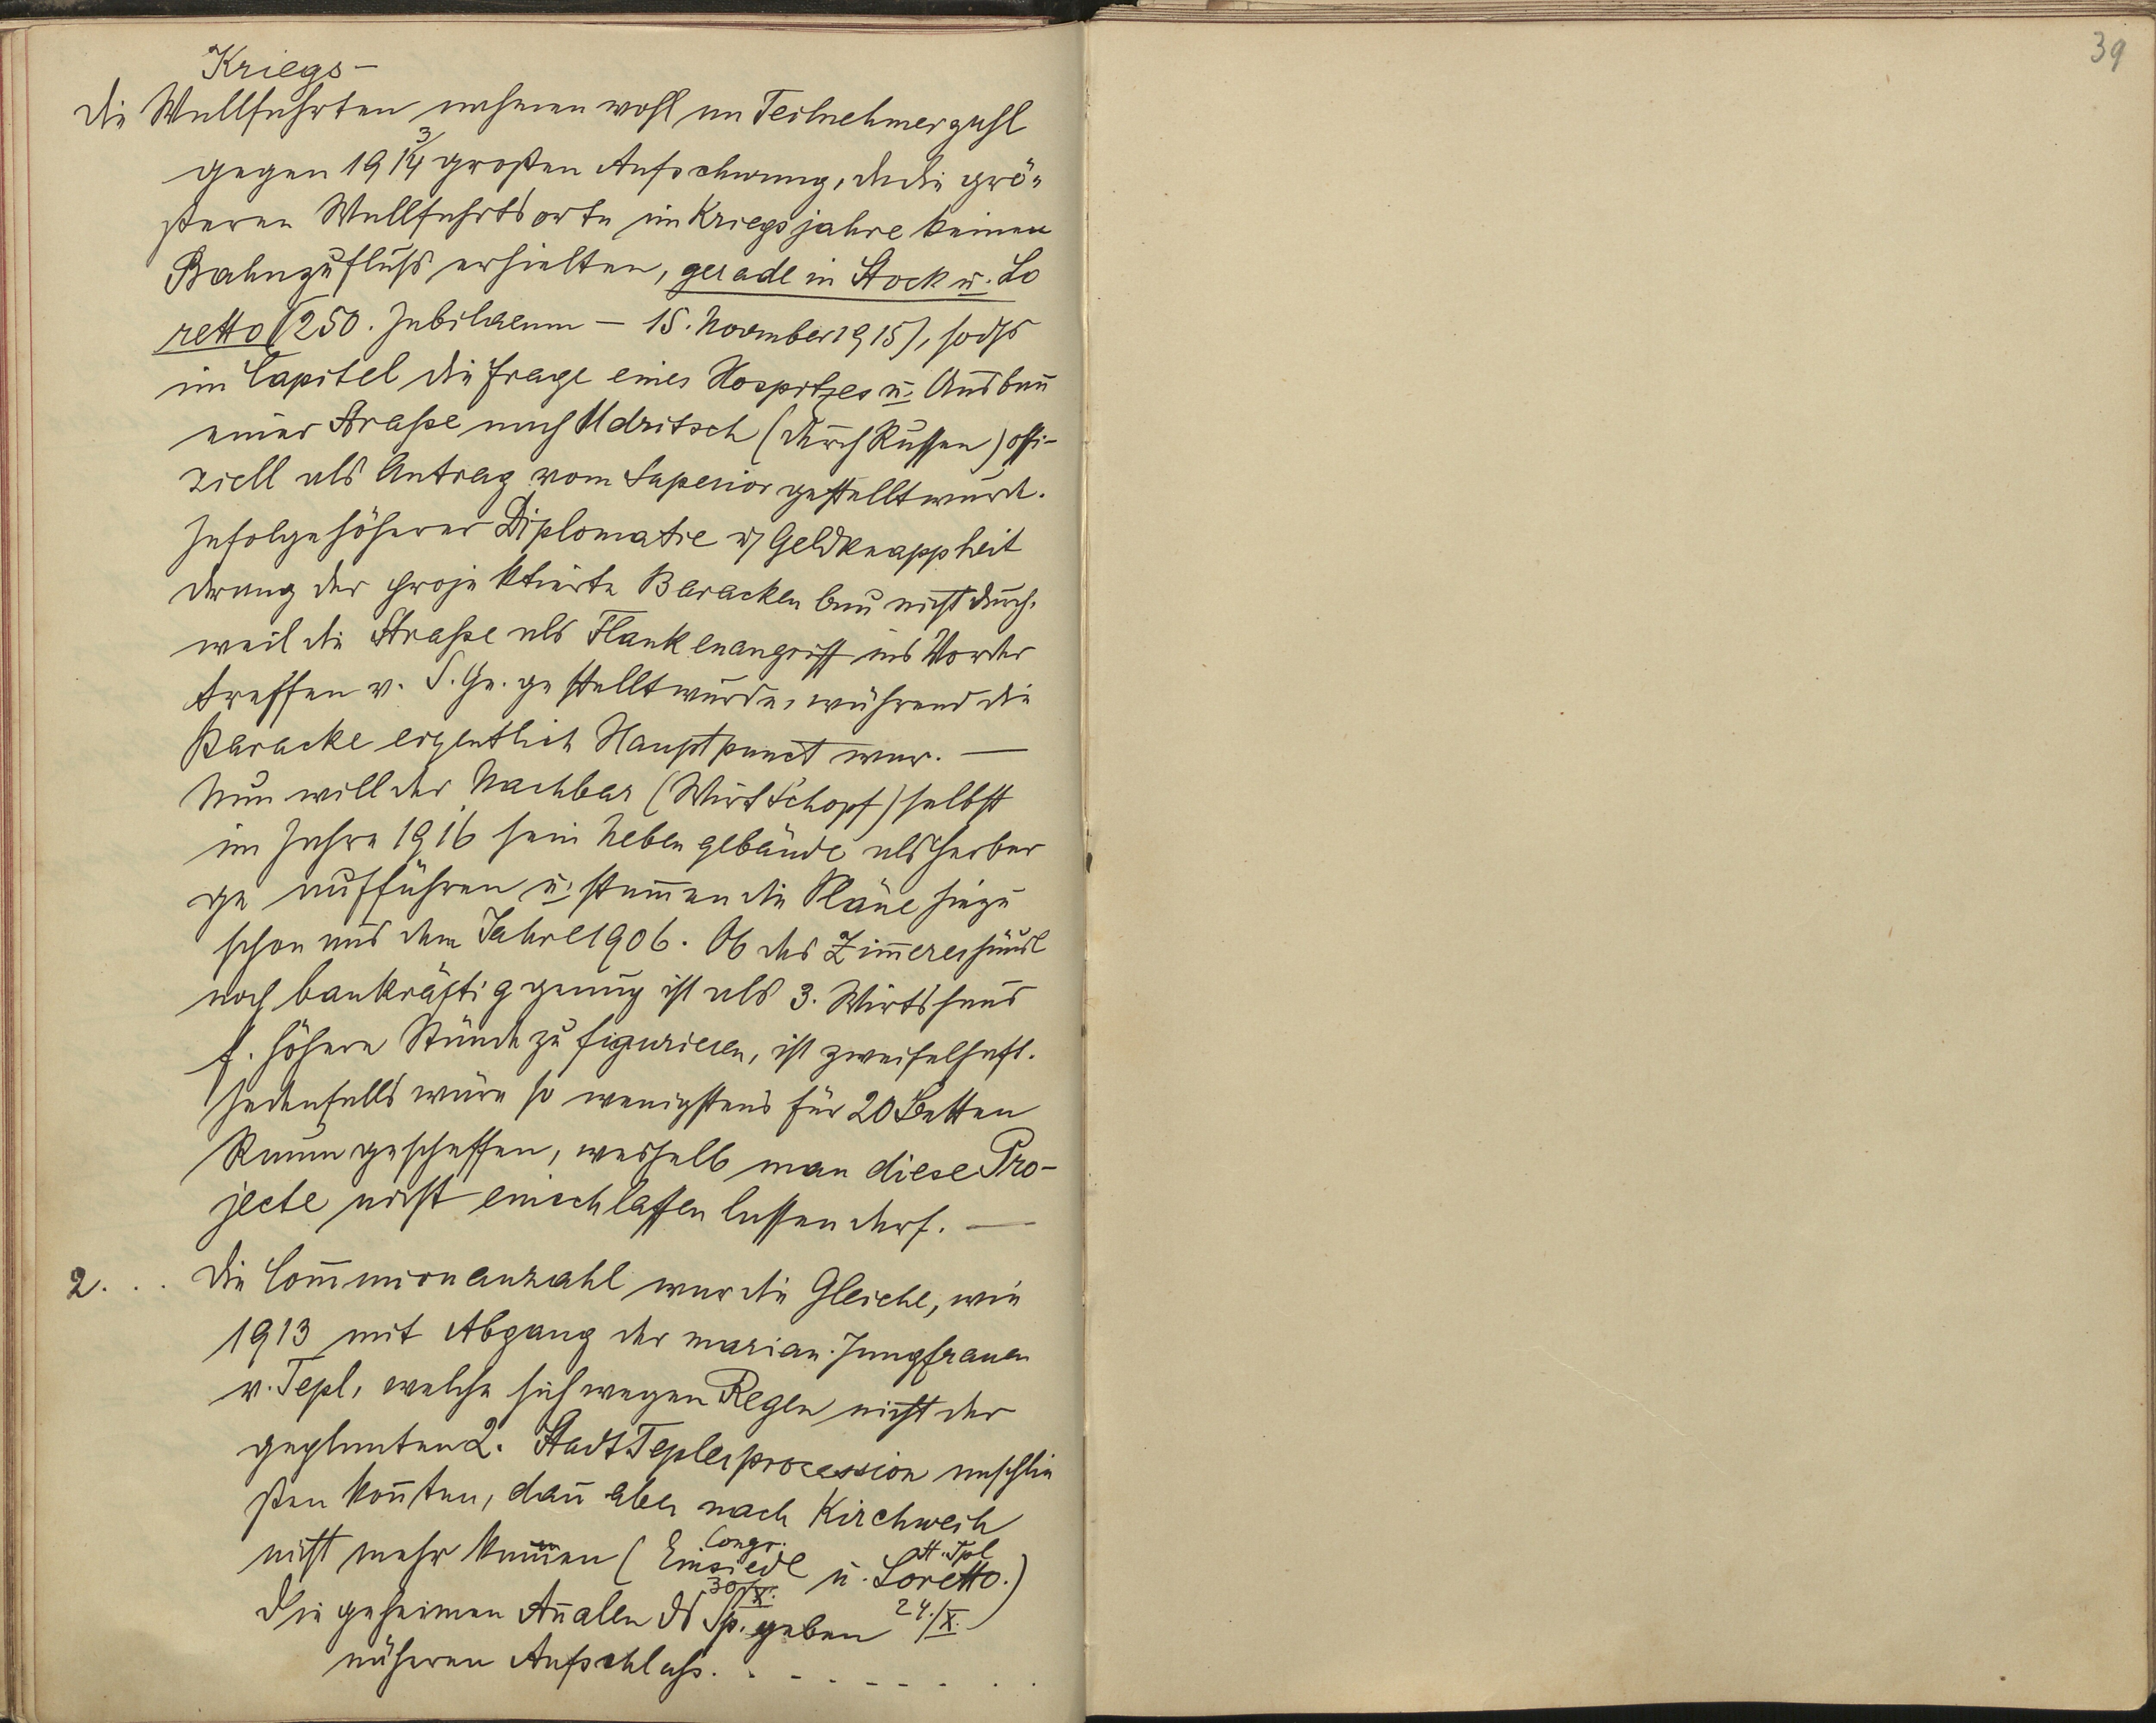 39
Kriegs-
Die Wallfahrten nahmen wohl an Teilnehmerzahl
gegen 1913/14 großen Aufschwung, da die grö-
ßeren Wallfahrtsorte im Kriegsjahre keinen
Bahnzufluß erhielten, gerade in Stock u. Lo
retto (250. Jubilaeum – 15. November 1915), sodß
im Capitel die Frage eines Hospitzes u. Ausbau
einer Straße nach Udritsch (durch Russen) offi-
ziell als Antrag vom Superior gestellt wurde.
Infolge höherer Diplomatie u. Geldknappheit
drang der projektierte Barackenbau nicht durch,
weil die Straße als Flankenangriff ins Vorder
treffen v. S. Gn. gestellt wurde, während die
Baracke eigentlich Hauptpunct war. —
Nun will der Nachbar (Wirt Schopf) selbst
im Jahre 1916 sein Nebengebäude als Herber
ge aufführen u. stam̅en die Pläne hiezu
schon aus dem Jahre 1906. Ob das Zim̅ererhäusl
noch baukräftig genug ist als 3. Wirtshaus
f. höhere Stände zu figurieren, ist zweifelhaft.
Jedenfalls wäre so wenigstens für 20 Betten
Raum geschaffen, weshalb man diese Pro-
jecte nicht einschlafen lassen darf. —
2. . . Die Com̅unionanzahl war die Gleiche, wie
1913 mit Abgang der marian. Jungfrauen
v. Tepl, welche sich wegen Regen nicht der
geplanten 2. Stadt Teplerprocession anschlie
ßen kon̅ten, dan̅ aber nach Kirchweih
nicht mehr kamen (Congr. Einsiedl 30/X. u. St. Tpl Loretto.) 24./X.
Die geheimen An̅alen ds Sp. geben
näheren Aufschluß. . . . . . . . .